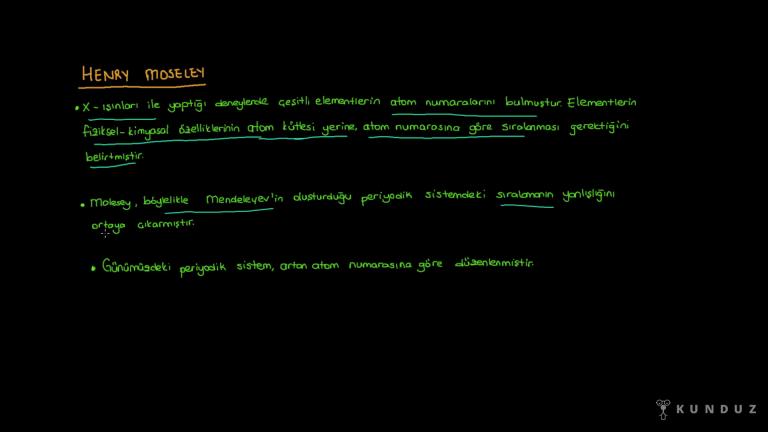 HENRY MOSELEY
• X-ışınları ile yaptığı deneylerde çeşitli elementlerin atom numaralarını bulmuştur. Elementlerin
fiziksel-kimyasal özelliklerinin atom kütlesi yerine, atom numarasına göre sıralanması gerektiğini
belirtmiştir.
• Molesey, böylelikle Mendeleyev'in oluşturduğu periyodik sistemdeki sıralamanın yanlışlığını
ortaya çıkarmıştır.
• Günümüzdeki periyodik sistem, artan atom numarasına göre düzenlenmiştir.
KUNDUZ